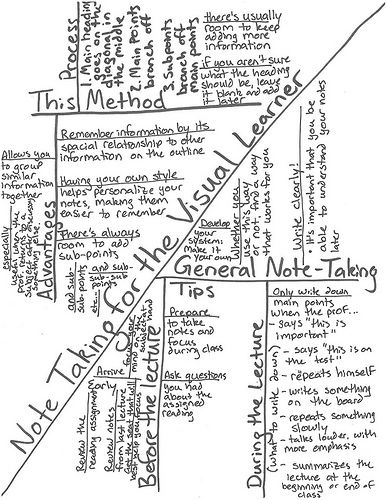 Note Taking for the Visual Learner
This Method
Process
1. Main heading
goes on the
diagonal in
the middle
2. Main Points
branch off
3. Subpoints
branch off
main points
there's usually
room to keep
adding more
information
if you aren't sure
what the heading
should be, leave
it blank and add
it later
Advantages
Remember information by its
spacial relationship to other
information on the outline
Allows you
to group
similar
information
together
especially
useful when the
prof returns to a
subject after discussing
something else.
Having your own style
helps personalize your
notes, making them
easier to remember
There's always
room to add
sub-points
and sub-
sub-points
and sub-
sub-sub-
points
etc...
General Note-Taking
Tips
Develop
your
system:
make it
your own
Whether you
use this way
or not, find a way
that works for you
Write clearly!
• It's important that you be
able to understand your notes
later
Before the lecture
Arrive
Early
focus your
mind on the
subject at
hand
Get the seat that will
best help you focus
Review notes
from last lecture
Review the
reading assignment
Prepare
to take
notes and
focus
during class
Ask questions
you had about
the assigned
reading
During the Lecture
(what to write down)
Only write down
main points
when the prof...
- says "this is
important"
- says "this is on
the test"
- repeats himself
- writes something
on the board
- repeats something
slowly
- talks louder, with
more emphasis
- summarizes the
lecture at the
beginning or end of
class